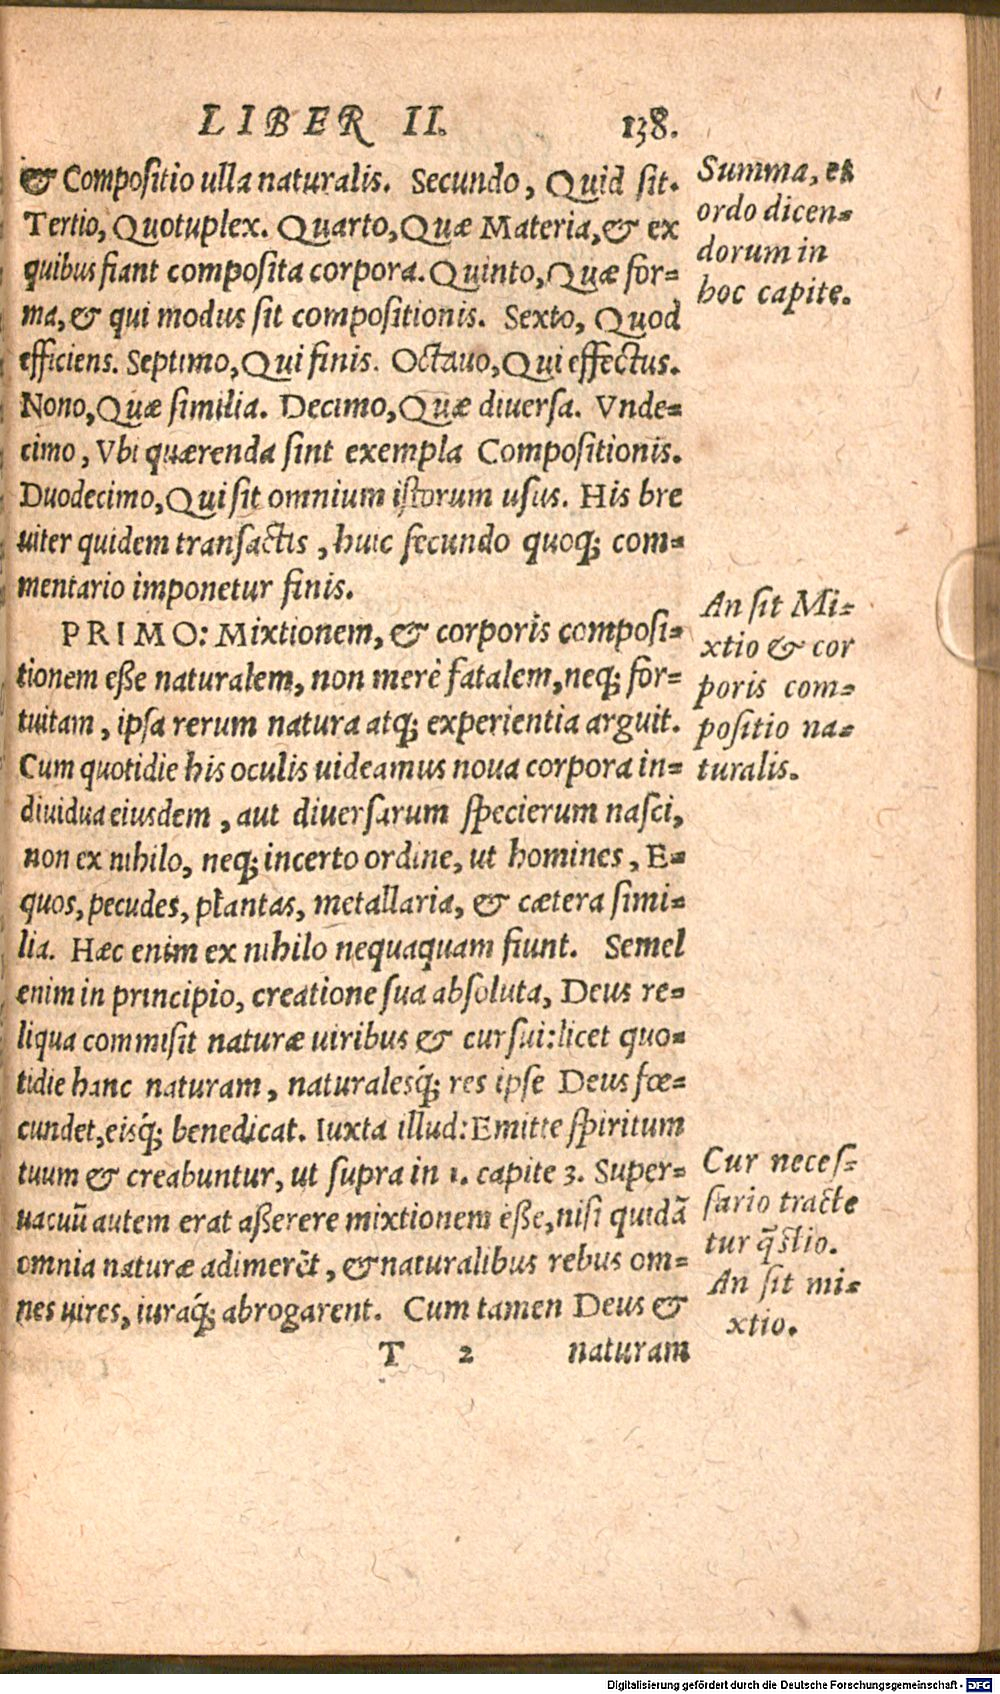 LIBER II. 138.
& Compositio ulla naturalis. Secundo, Quid sit.
Tertio, Quotuplex. Quarto, Quæ Materia, & ex
quibus fiant composita corpora. Quinto, Quæ for-
ma, & qui modus sit compositionis. Sexto, Quod
efficiens. Septimo, Qui finis. Octauo, Qui effectus.
Nono, Quæ similia. Decimo, Quæ diuersa. Vnde-
cimo, Vbi quærenda sint exempla Compositionis.
Duodecimo, Qui sit omnium istorum usus. His bre
uiter quidem transactis, huic secundo quoq; com-
mentario imponetur finis.
PRIMO: Mixtionem, & corporis composi-
tionem eße naturalem, non merè fatalem, neq; for-
tuitam, ipsa rerum natura atq; experientia arguit.
Cum quotidie his oculis uideamus noua corpora in-
diuidua eiusdem, aut diuersarum specierum nasci,
non ex nihilo, neq; incerto ordine, ut homines, E-
quos, pecudes, plantas, metallaria, & cætera simi-
lia. Hæc enim ex nihilo nequaquam fiunt. Semel
enim in principio, creatione sua absoluta, Deus re-
liqua commisit naturæ uiribus & cursui: licet quo-
tidie hanc naturam, naturalesq́; res ipse Deus fœ-
cundet, eisq́; benedicat. Iuxta illud: Emitte spiritum
tuum & creabuntur, ut supra in 1. capite 3. Super-
uacuū autem erat aßerere mixtionem eße, nisi quidā
omnia naturæ adimerēt, & naturalibus rebus om-
nes uires, iuraq́; abrogarent. Cum tamen Deus &
T 2 naturam
Summa, et
ordo dicen-
dorum in
hoc capite.
An sit Mi-
xtio & cor
poris com-
positio na-
turalis.
Cur neces-
sario tracte
tur q̄stio.
An sit mi-
xtio.
Digitalisierung gefördert durch die Deutsche Forschungsgemeinschaft - DFG